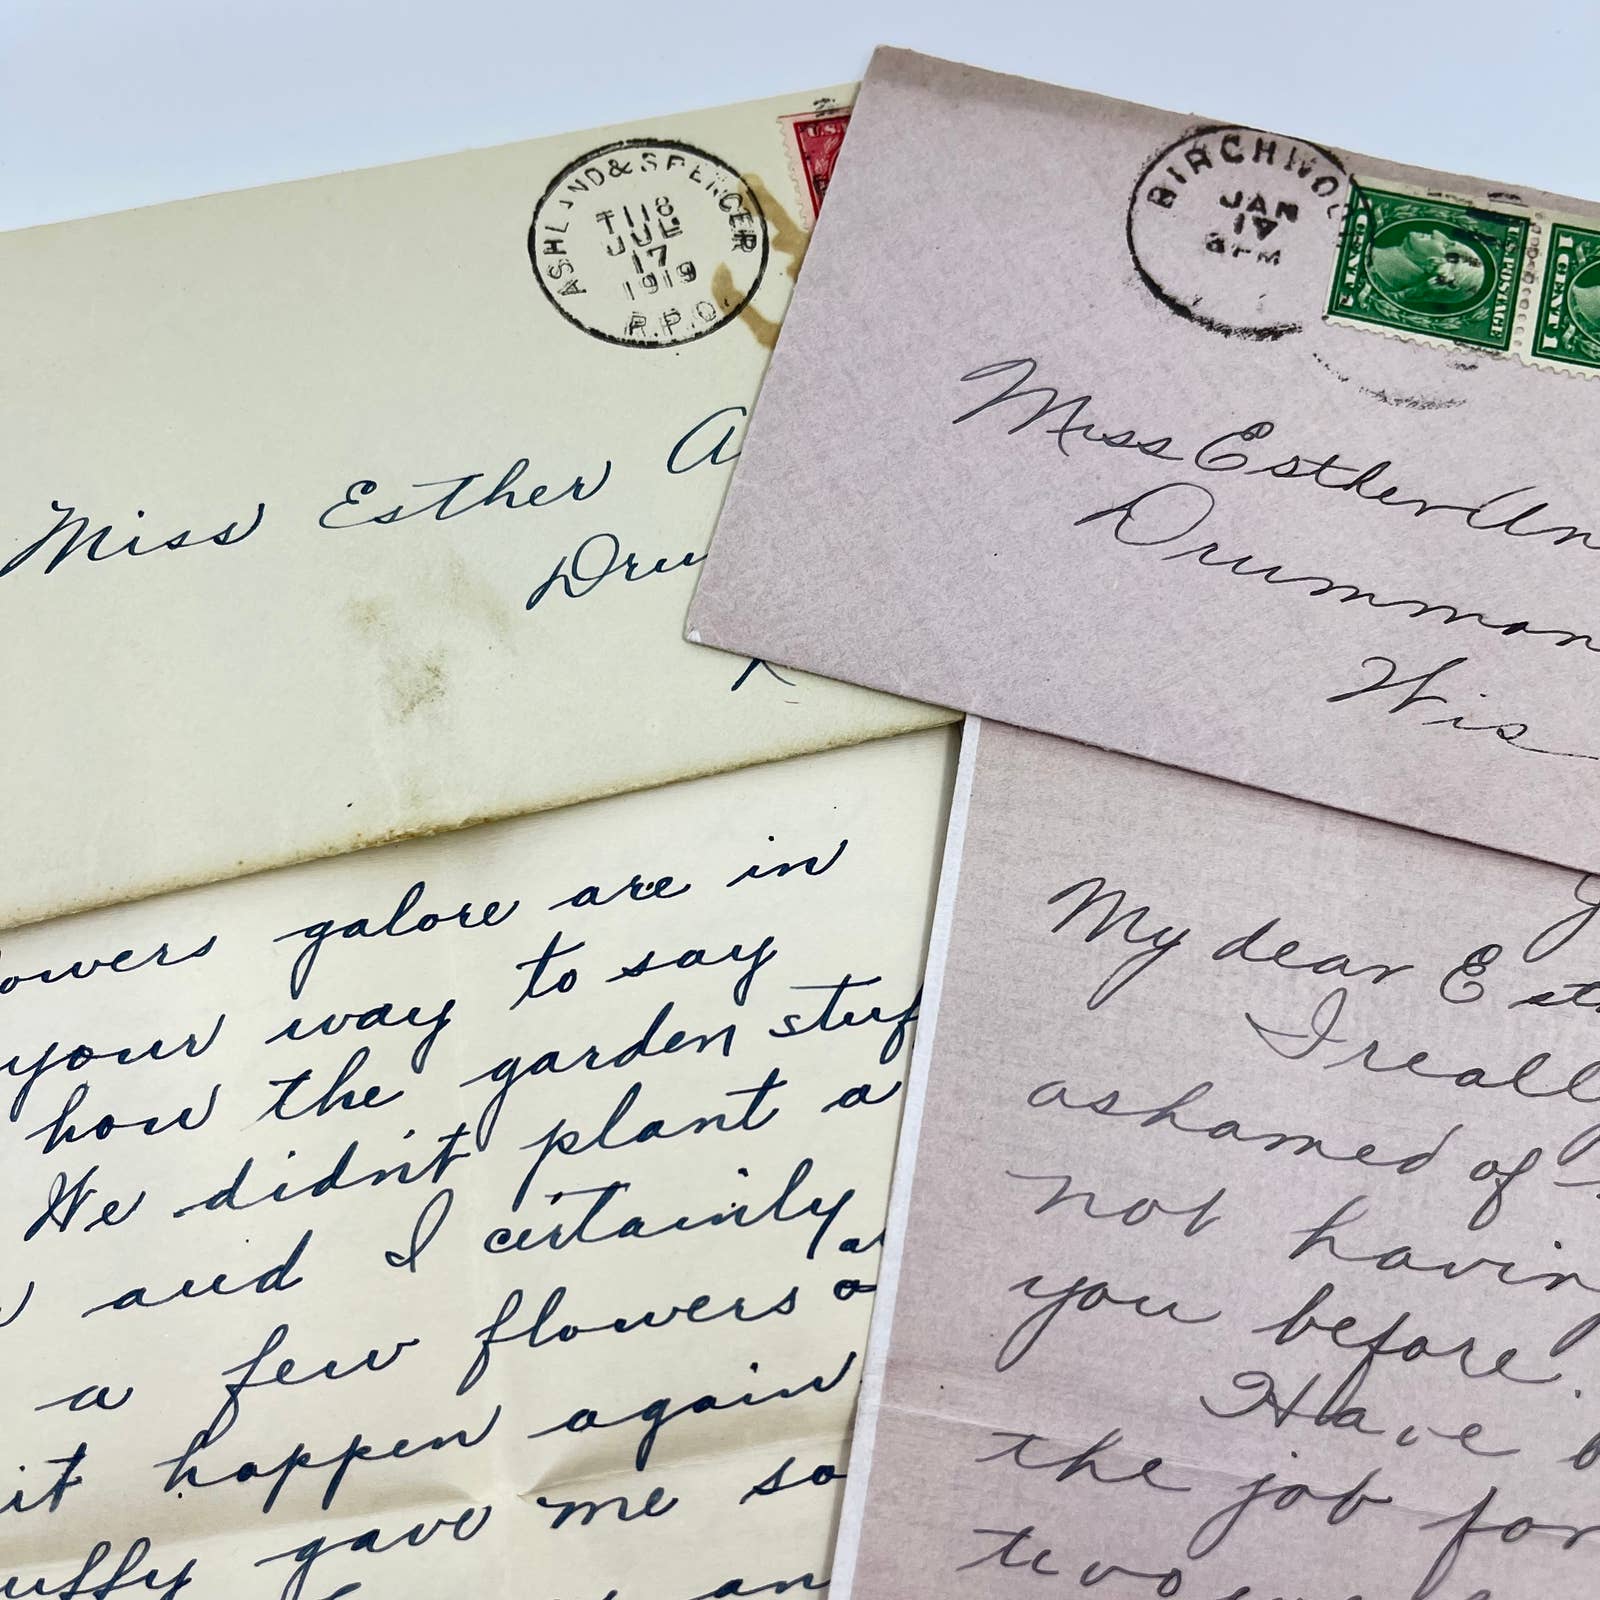 ASHLAND & SPENCER
T118.
JUL
17
1919
R.P.O.
Miss Esther A
Dru
BIRCHWOO
JAN
8 PM
1 CENT 1
U.S. POSTAGE
1 CENT 1
Miss Esther An
Drummon
Wis
owers galore are in
your way to say
how the garden stuf
We didn't plant a
and I certainly
a few flowers
it happen again
uffy gave me so
an
My dear Esth
I really
ashamed of
not having
you before.
Have b
the job for
two